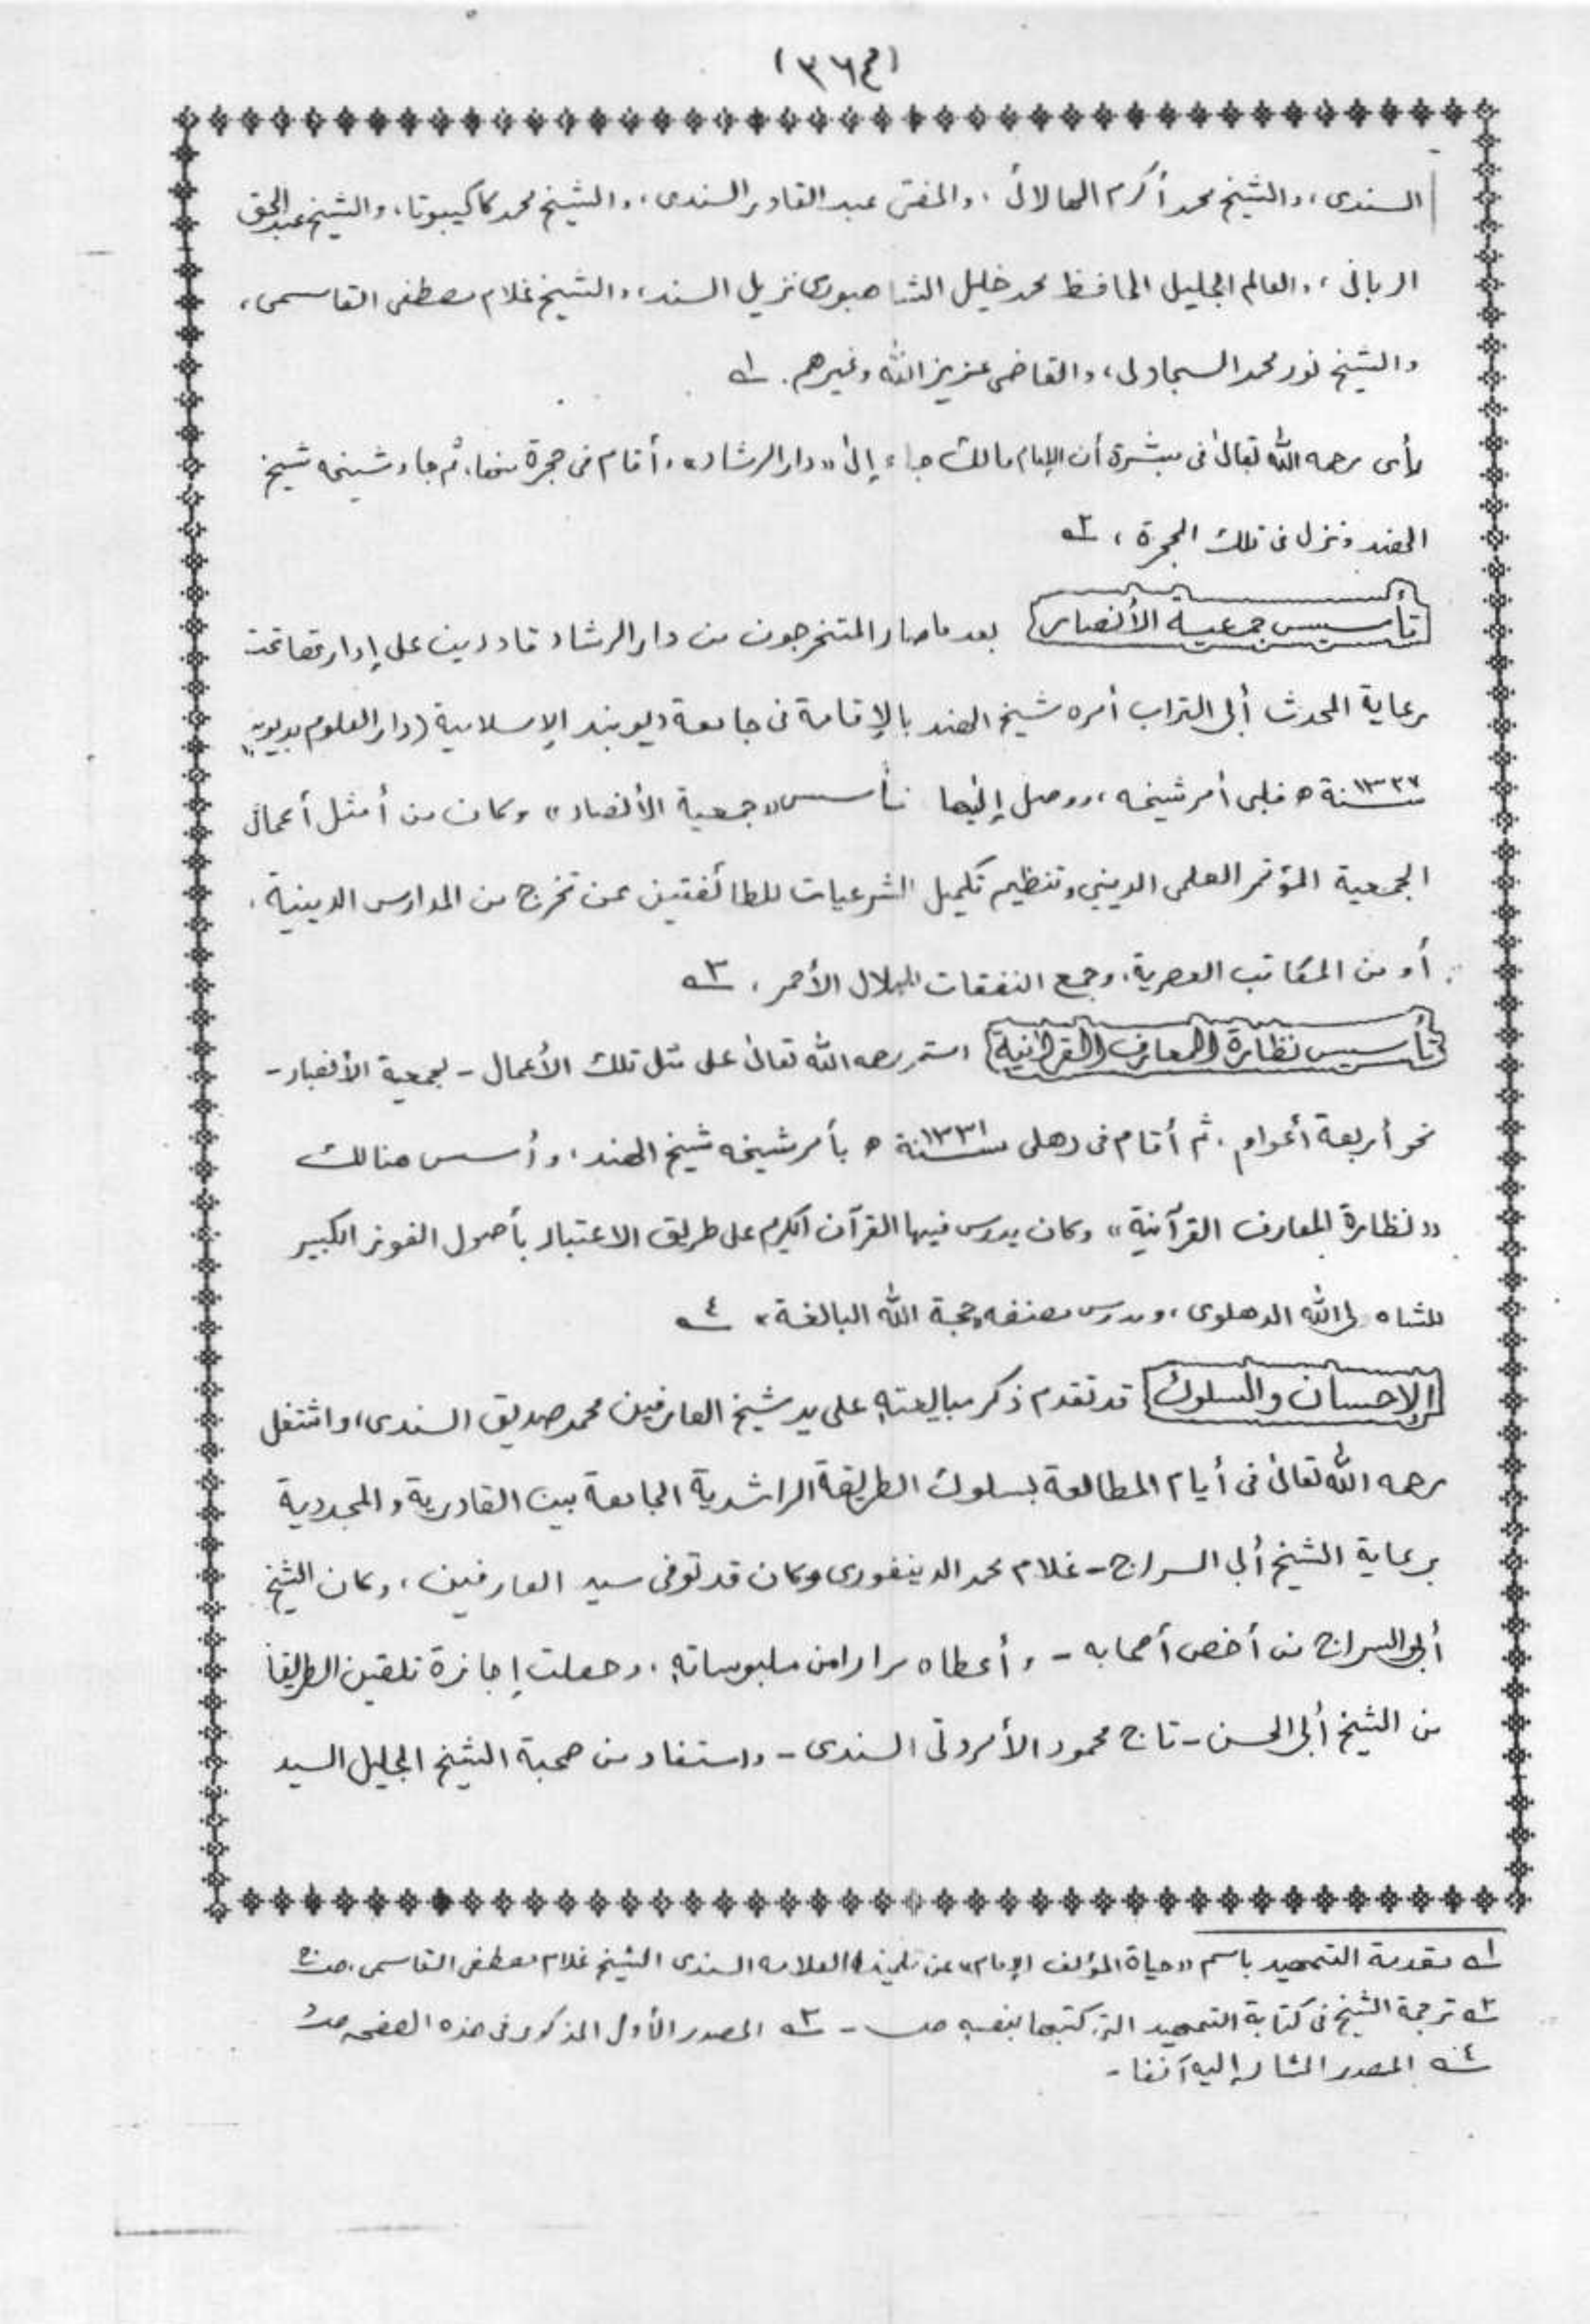 (٣٦٤)
السندى، والشيخ محمد أكرم الهالائى، والمفتى عبد القادر السندى، والشيخ محمد كاكيبوتا، والشيخ عبد الحق
الربانى، والعالم الجليل الحافظ محمد خليل الشاهبورى نزيل السند، والشيخ غلام مصطفى القاسمى،
والشيخ نور محمد السجاولى، والقاضى عزيز الله وغيرهم. ١ه
رأى رحمه الله تعالىٰ فى مبشرة أن الإمام مالك جاء إلىٰ «دار الرشاد» وأقام فى حجرة منها، ثم جاء شيخه شيخ
الهند ونزل فى تلك الحجرة، ٢ه
تأسيس جمعية الأنصار بعد ما صار المتخرجون من دار الرشاد قادرين على إدارتها تحت
رعاية المحدث أبى التراب أمره شيخ الهند بالإقامة فى جامعة ديوبند الإسلامية (دار العلوم بديوبند)
سنة ١٣٢٧ه فلبى أمر شيخه، ووصل إليها فأسس «جمعية الأنصار» وكان من أمثل أعمال
الجمعية المؤتمر العلمى الدينى وتنظيم تكميل الشرعيات للطائفتين ممن تخرج من المدارس الدينية،
أو من المكاتب العصرية، وجمع النفقات للهلال الأحمر، ٣ه
تأسيس نظارة المعارف القرآنية استمر رحمه الله تعالىٰ على مثل تلك الأعمال - لجمعية الأنصار -
نحو أربعة أعوام. ثم أقام فى دهلى سنة ١٣٣١ه بأمر شيخه شيخ الهند، وأسس هنالك
«نظارة المعارف القرآنية» وكان يدرس فيها القرآن الكريم على طريق الاعتبار بأصول الفوز الكبير
للشاه ولى الله الدهلوى، ويدرس مصنفه «حجة الله البالغة» ٤ه
الإحسان والسلوك قد تقدم ذكر مبايعته على يد شيخ العارفين محمد صديق السندى، واشتغل
رحمه الله تعالىٰ فى أيام المطالعة بسلوك الطريقة الراشدية الجامعة بين القادرية والمجددية
برعاية الشيخ أبى السراج - غلام محمد الدينفورى وكان قد توفى سيد العارفين، وكان الشيخ
أبى السراج من أخص أصحابه - وأعطاه مرارا من ملبوساته، وحصلت إجازة تلقين الطريقة
من الشيخ أبى الحسن - تاج محمود الأمروتى السندى - واستفاد من صحبة الشيخ الجليل السيد
١ه مقدمة التمهيد باسم «حياة المؤلف الإمام» عن تلميذ العلامه السندى الشيخ غلام مصطفى القاسمى.
٢ه ترجمة الشيخ فى كتابة التمهيد التى كتبها بنفسه ص - ٣ه المصدر الأول المذكور فى هذه الصفحه
٤ه المصدر المشار إليه آنفا -